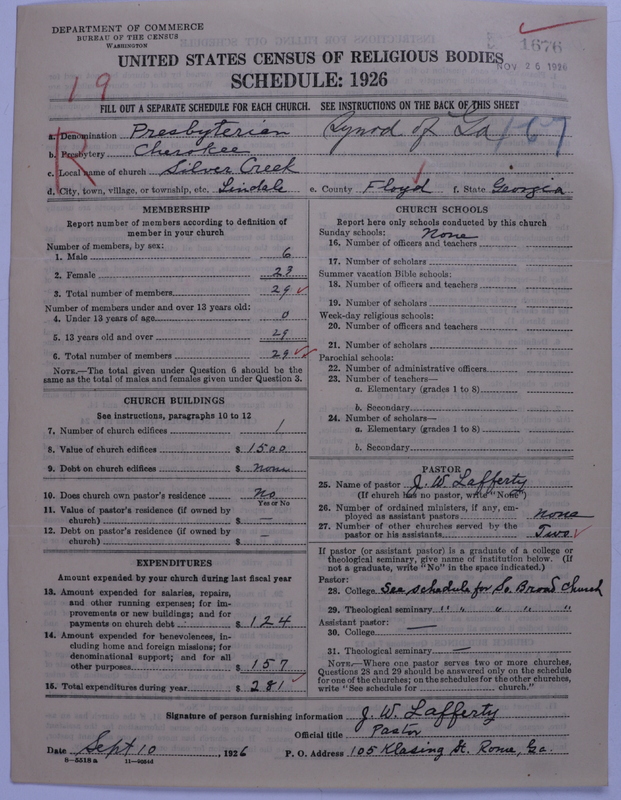 DEPARTMENT OF COMMERCE
BUREAU OF THE CENSUS
WASHINGTON
1676
NOV 26 1926
UNITED STATES CENSUS OF RELIGIOUS BODIES
SCHEDULE: 1926
19
FILL OUT A SEPARATE SCHEDULE FOR EACH CHURCH. SEE INSTRUCTIONS ON THE BACK OF THIS SHEET
R
a. Denomination Presbyterian Synod of Ga 167
b. Presbytery Cherokee
c. Local name of church Silver Creek
d. City, town, village, or township, etc. Lindale e. County Floyd f. State Georgia
MEMBERSHIP
Report number of members according to definition of
member in your church
Number of members, by sex:
1. Male 6
2. Female 23
3. Total number of members 29
Number of members under and over 13 years old:
4. Under 13 years of age 0
5. 13 years old and over 29
6. Total number of members 29
NOTE.—The total given under Question 6 should be
same as the total of males and females given under Question 3.
CHURCH BUILDINGS
See instructions, paragraphs 10 to 12
7. Number of church edifices 1
8. Value of church edifices $ 1500
9. Debt on church edifices $ None
10. Does church own pastor's residence No
Yes or No
11. Value of pastor's residence (if owned by
church) $ —
12. Debt on pastor's residence (if owned by
church) $ —
EXPENDITURES
Amount expended by your church during last fiscal year
13. Amount expended for salaries, repairs,
and other running expenses; for im-
provements or new buildings; and for
payments on church debt $ 124
14. Amount expended for benevolences, in-
cluding home and foreign missions; for
denominational support; and for all
other purposes $ 157
15. Total expenditures during year $ 281
CHURCH SCHOOLS
Report here only schools conducted by this church
Sunday schools: None
16. Number of officers and teachers
17. Number of scholars
Summer vacation Bible schools:
18. Number of officers and teachers
19. Number of scholars
Week-day religious schools:
20. Number of officers and teachers
21. Number of scholars
Parochial schools:
22. Number of administrative officers
23. Number of teachers—
a. Elementary (grades 1 to 8)
b. Secondary
24. Number of scholars—
a. Elementary (grades 1 to 8)
b. Secondary
PASTOR
25. Name of pastor J. W. Lafferty
(If church has no pastor, write "None")
26. Number of ordained ministers, if any, em-
ployed as assistant pastors none
27. Number of other churches served by the
pastor or his assistants Two
If pastor (or assistant pastor) is a graduate of a college or
theological seminary, give name of institution below. (If
not a graduate, write "No" in the space indicated.)
Pastor:
28. College See schedule for So. Broad Church
29. Theological seminary " " " " "
Assistant pastor:
30. College —
31. Theological seminary —
NOTE.—Where one pastor serves two or more churches,
Questions 28 and 29 should be answered only on the schedule
for one of the churches; on the schedules for the other churches,
write "See schedule for church."
Signature of person furnishing information J. W. Lafferty
Official title Pastor
Date Sept 10, 1926 P. O. Address 105 Klasing St. Rome, Ga.
8—5518 a 11—9054d